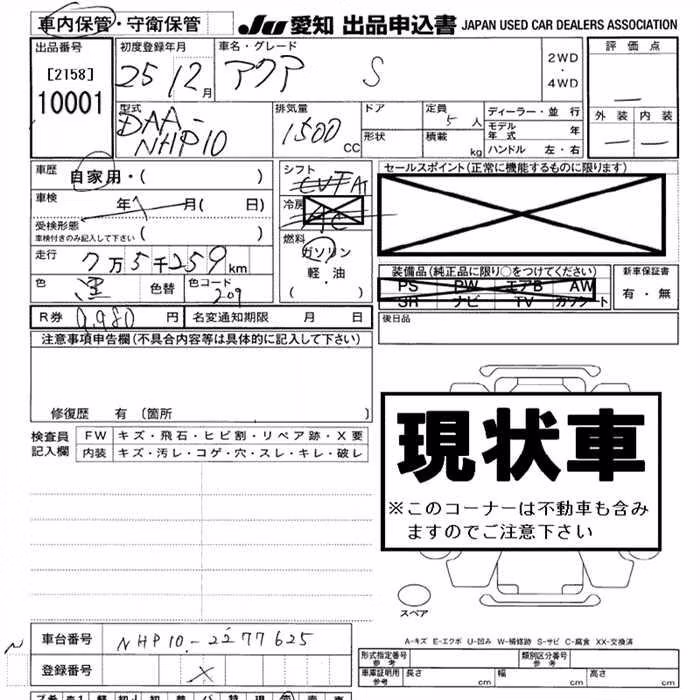 車内保管・守衛保管
JU 愛知 出品申込書 JAPAN USED CAR DEALERS ASSOCIATION
出品番号 初度登録年月 車名・グレード 2WD・4WD 評価点
[2158] 25 12月 アクア S
10001
型式 排気量 ドア 定員 5人 ディーラー・並行 外装 内装
DAA-NHP10 1500CC 形状 積載 kg モデル年式 年
ハンドル 左・右
車歴 自家用・( ) シフト AT セールスポイント(正常に機能するものに限ります)
車検 年 月( 日) 冷房
受検形態 ( )
車検付きのみ記入して下さい
燃料 ガソリン 軽・油 ( )
走行 7万5千259km
装備品(純正品に限り○をつけてください) 新車保証書
PS PW エアB AW 有・無
SR ナビ TV カセット
色 色替 色コード 209
R券 9,980円 名変通知期限 月 日 後日品
注意事項申告欄(不具合内容等は具体的に記入して下さい)
修復歴 有 〔箇所 〕
現状車
※このコーナーは不動車も含み
ますのでご注意下さい
検査員 FW キズ・飛石・ヒビ割・リペア跡・X要
記入欄 内装 キズ・汚レ・コゲ・穴・スレ・キレ・破レ
スペア
A-キズ E-エクボ U-凹み W-補修跡 S-サビ C-腐食 XX-交換済
車台番号 NHP10-2277625
登録番号 X
型式指定番号 参考 類別区分番号 参考
車庫証明用 参考 長さ cm 幅 cm 高さ cm